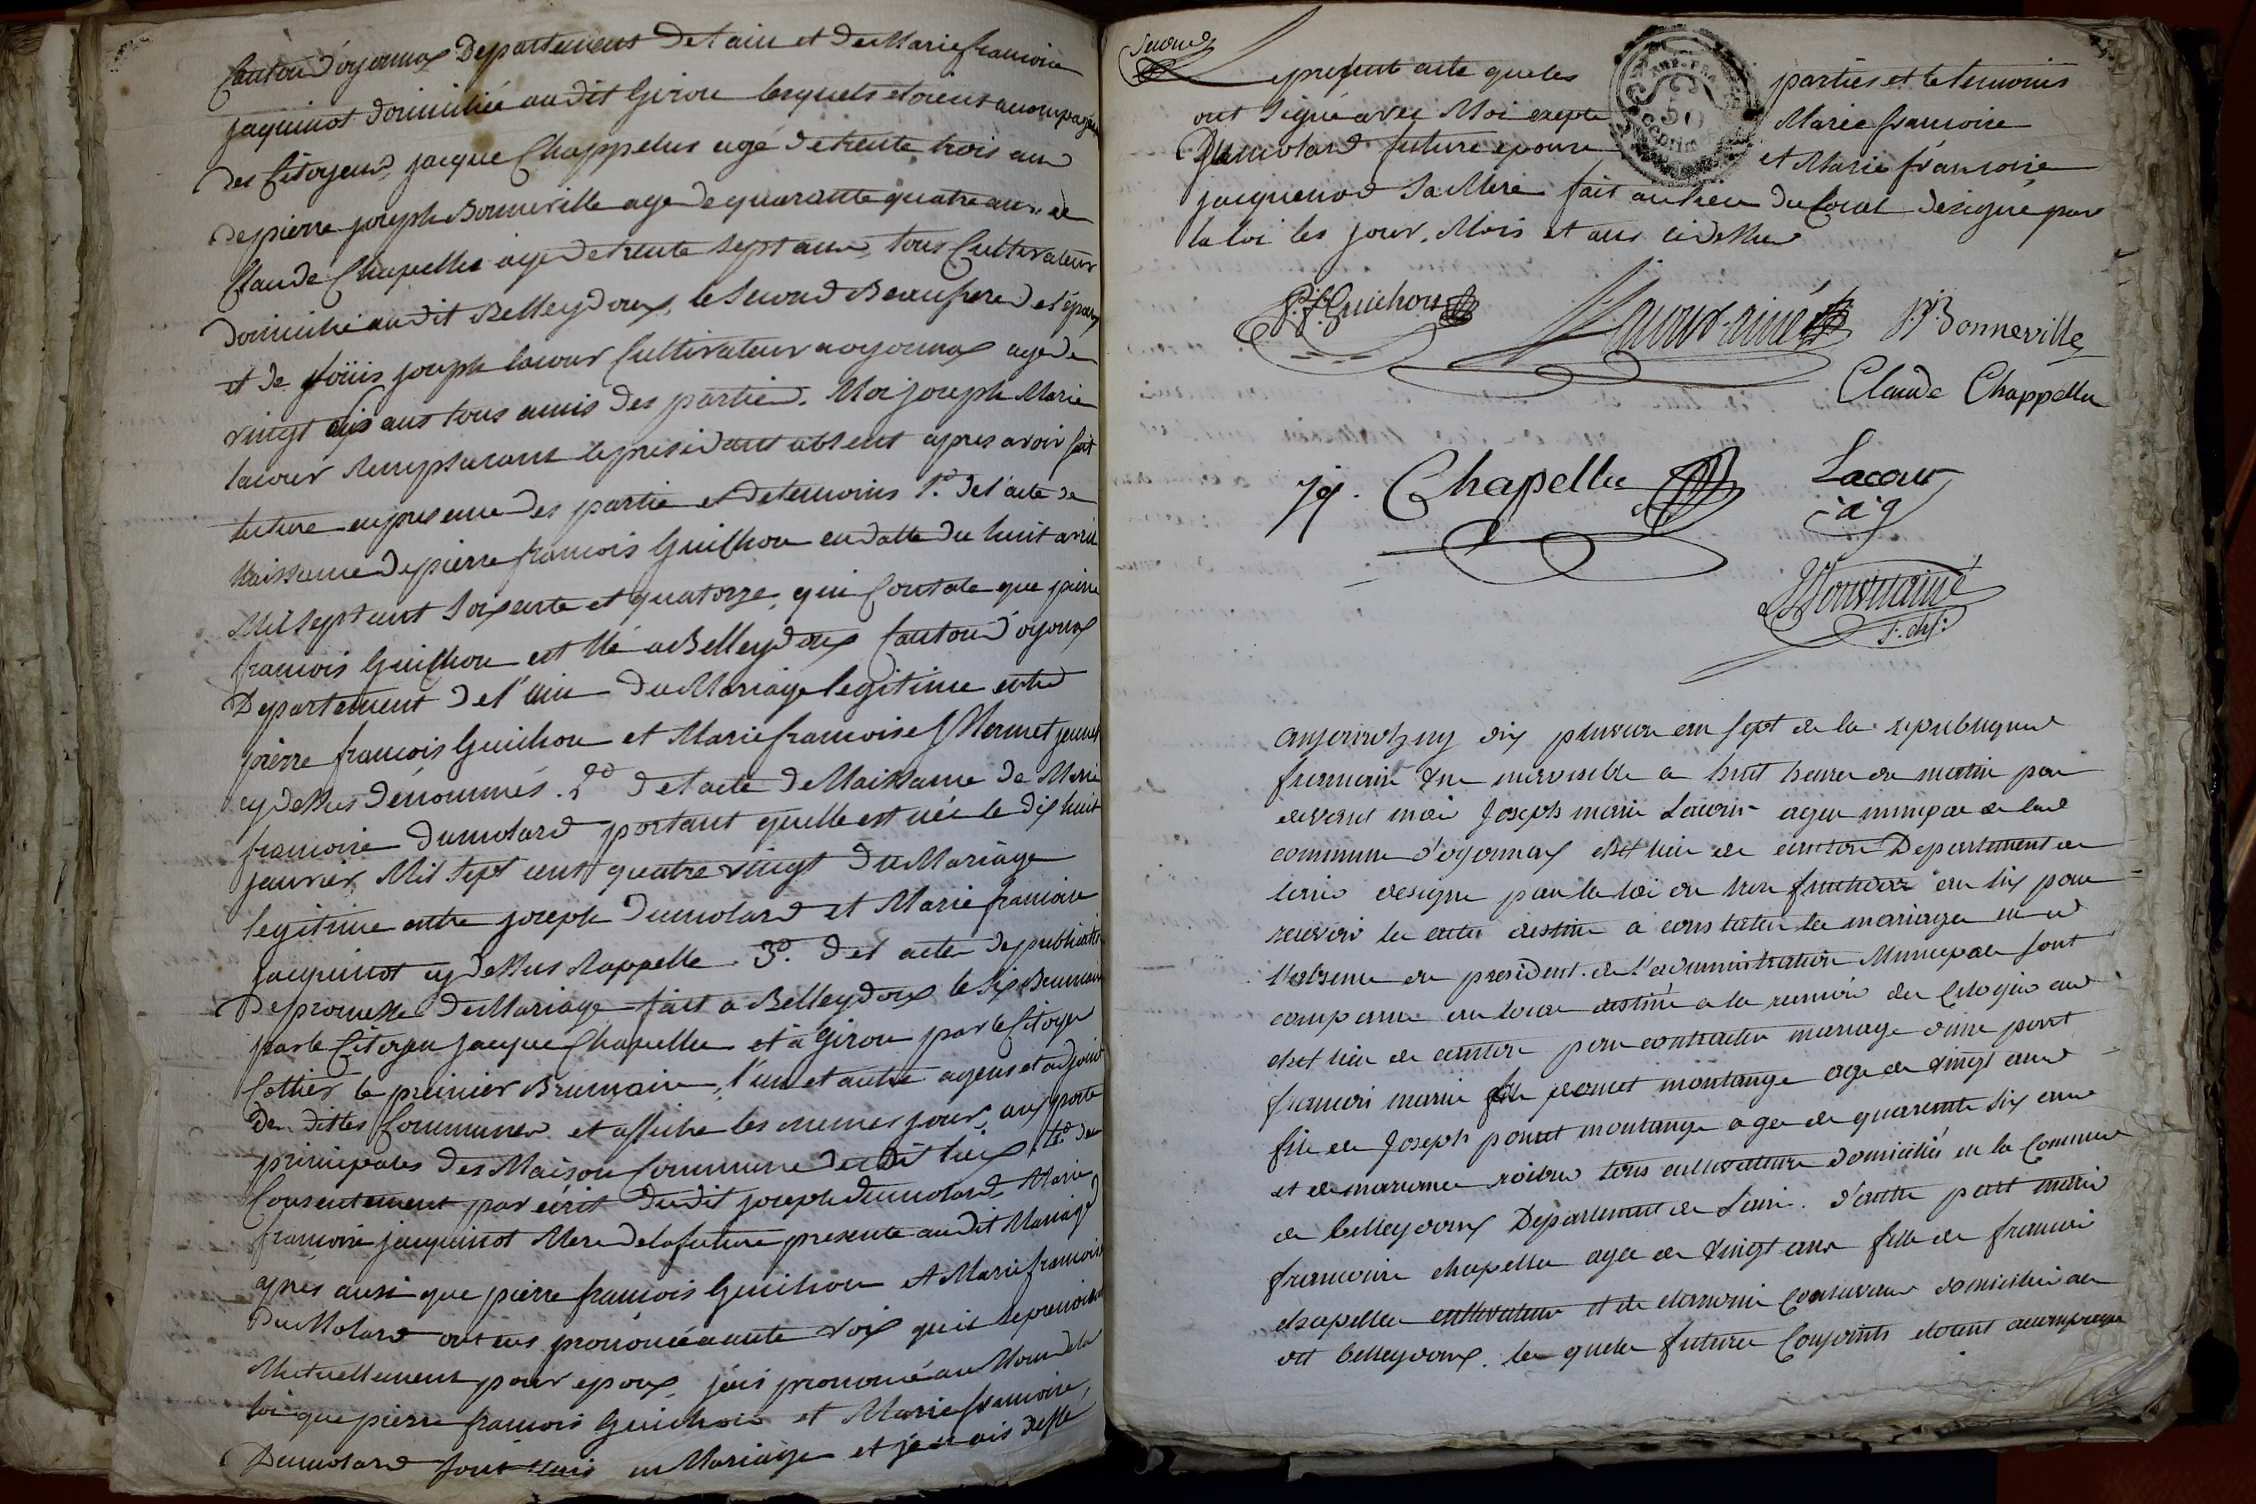 Canton d'oyonnax Departement de l'ain et de Marie francoise
jaquinot domiciliée au dit Giron lesquels etoient accompagnés
des Citoyens jacque Chappelus agé de trente trois ans
de pierre joseph Bonneville age de quarante quatre ans et
Claude Chapellu age de trente sept ans, tous Cultivateurs
domicilié au dit Belleydoux, le second Beaufrere de l'époux
et de joseph lacour Cultivateur a oyonnax age de
vingt ans tous amis des parties. Moi joseph Marie
lacour Remplacant le president absent apres avoir fait
lecture en presence des partie et de temoins 1.º de l'acte de
Naissance de pierre francois Guichon en datte du huit avril
Mil sept cent soixante et quatorze, qui Constate que pierre
francois Guichon est Né a Belleydoux Canton d'oyonax
Departement de l'ain du Mariage legitime entre
pierre francois Guichon et Marie francoise Mermet jeunet
cy dessus dénommés. 2º de l'acte de Naissance de Marie
francoise Dumolard portant quelle est née le dix huit
janvier Mil sept cent quatre vingt du Mariage
legitime entre joseph Dumolard et Marie francoise
jacquinot cy dessus Rappelle. 3º. de l'acte de publication
de promesse de Mariage fait a Belleydoux le six Brumaire
par le Citoyen jacque Chapellu et à Giron par le Citoyen
Cottier le premier Brumaire, l'un et autre agens et adjoint
des dittes Communes et affiche les memes jour, aux porte
principales des Maison Commune du dit lieu 4º du
Consentement par écrit dudit joseph dumolard, Marie
francoise jaquinot Mere de la future presente au dit Mariage
apres aussi que pierre francois Guichon et Marie francoise
Du Molard ont eus prononcé a aute voix qu'il se prenoient
Mutuellement pour epoux, j'ais prononcé au Nom de la
loi que pierre francois Guichon et Marie francoise,
Dumolard sont unis en Mariage et j'en ais dressé
Second
Le present acte que les parties et le temoins
ont signé avec Moi exepte Marie francoise
Dumolard future epouse et Marie francoise
jacquenod sa Mere fait au lieu du local designé par
la loi les jour, Mois et ans ci dessus
REP. FRA.
50
CENTIM
P. f. Guichon
Lacour ainé
P. J. Bonneville
Claude Chappellu
Jq. Chapellu
Lacour
ag
aujourdhuy dix pluviose an sept de la republique
francaise une indivisible a huit heures du matin par
devant moi Joseph marie Lacour agen municipal de la
commune d'oyonnax chef lieu de canton Departement de
lain designe par la loi du fructidor an six pour
recevoir les actes destiné a constater les mariages en
l'absence du president de l'administration Municipale sont
comparus au local destiné a la reunion des Citoyen au
chef lieu de canton pour contracter mariage d'une part
francois marie poncet montange age de vingt ans
fils de Joseph poncet montange age de quarante six ans
et de marianne tous cultivateurs domiciliés en la Commune
de belleydoux Departement de Lain. d'autre part marie
francoise chapellu agee de vingt ans fille de francois
chapellu cultivateur et de domicilies au
dit belleydoux. les quels futurs Conjoints etoient accompagne